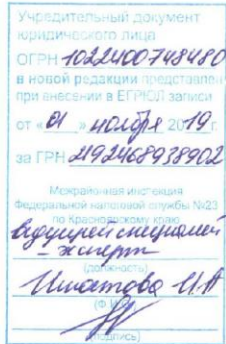 Учредительный документ
юридического лица
ОГРН 1022400748480
в новой редакции представлен
при внесении в ЕГРЮЛ записи
от «01» ноября 2019 г.
за ГРН 2192468938902
Межрайонная инспекция
Федеральной налоговой службы №23
по Красноярскому краю
Ведущий специалист
- эксперт
(должность)
И.А
(Ф.И.О.)
(подпись)